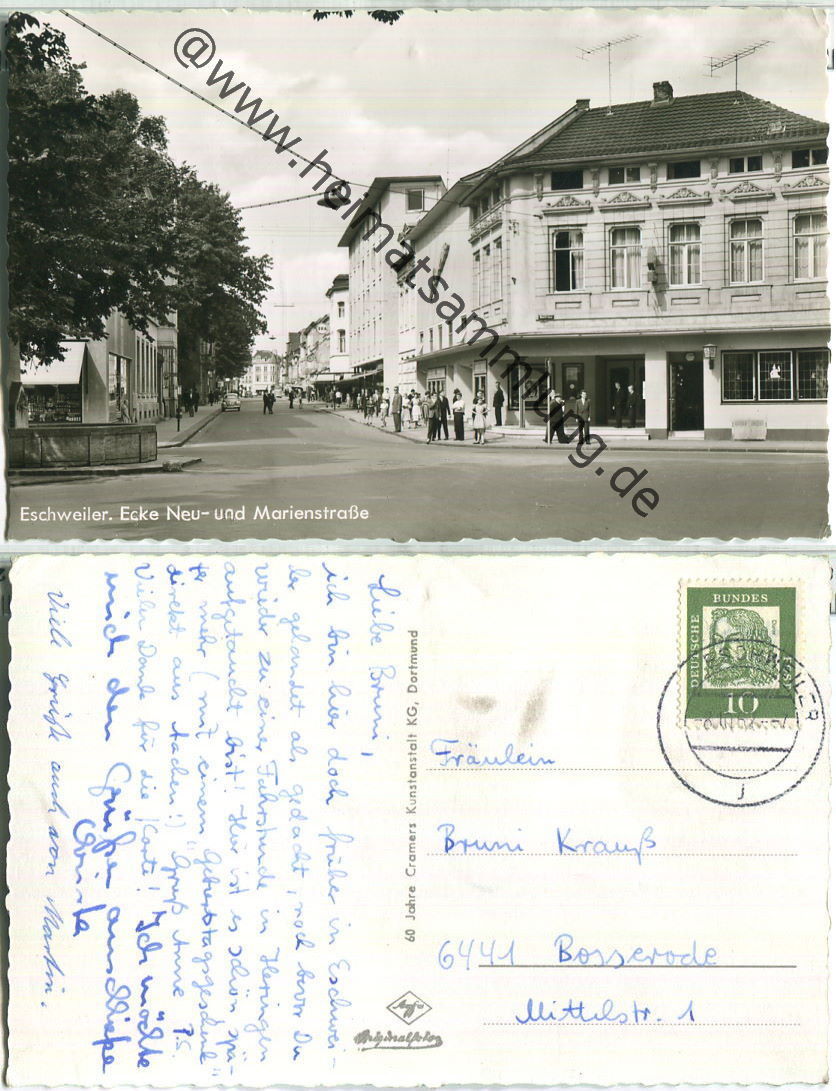 @www.heimatsammlung.de
Eschweiler. Ecke Neu- und Marienstraße
Liebe Bruni,
ich bin hier doch früher in Eschwei-
ler gelandet als gedacht, noch bevor Du
wieder zu einer Fahrstunde in Heringen
aufgetaucht bist! Hier ist es schön spä-
ter mehr (mit einem "Geburtstagsgeschenk"
direkt aus Aachen!) Gruß Anne P.S.
Vielen Dank für die Karte! Ich möchte
mich den Grüßen anschließe
Christa
Viele Grüße auch von Martin.
60 Jahre Cramers Kunstanstalt KG, Dortmund
Agfa
Originalfoto
DEUTSCHE
BUNDES
POST
Dürer
10
ESCHWEILER
j
Fräulein
Bruni Krauß
6441 Bosserode
Mittelstr. 1